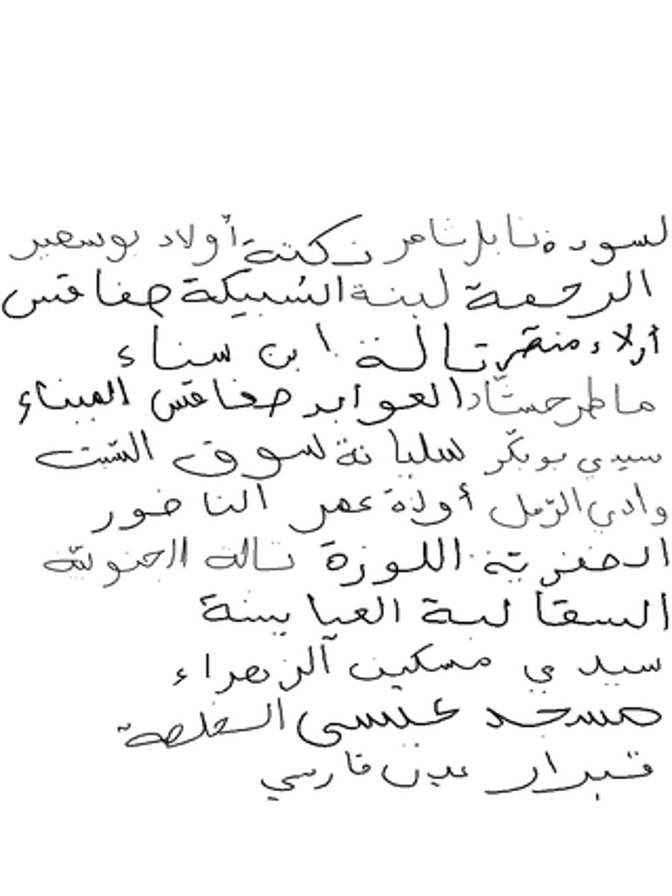 لسودة نابل شامر زكتة أولاد بوسمير
الرحمة لبنة الشبيكة صفاقس
أولاد منصر تالة ابن سناء
ماطر حشاد العوابد صفاقس الميناء
سيدي بوبكر سليانة سوق السبت
وادي الرمل أولاد عمر الناضور
الحفرية اللوزة تالة الجنوبية
السقالبة العباسة
سيدي مسكين الزهراء
مسجد عيسى
عين فارسي